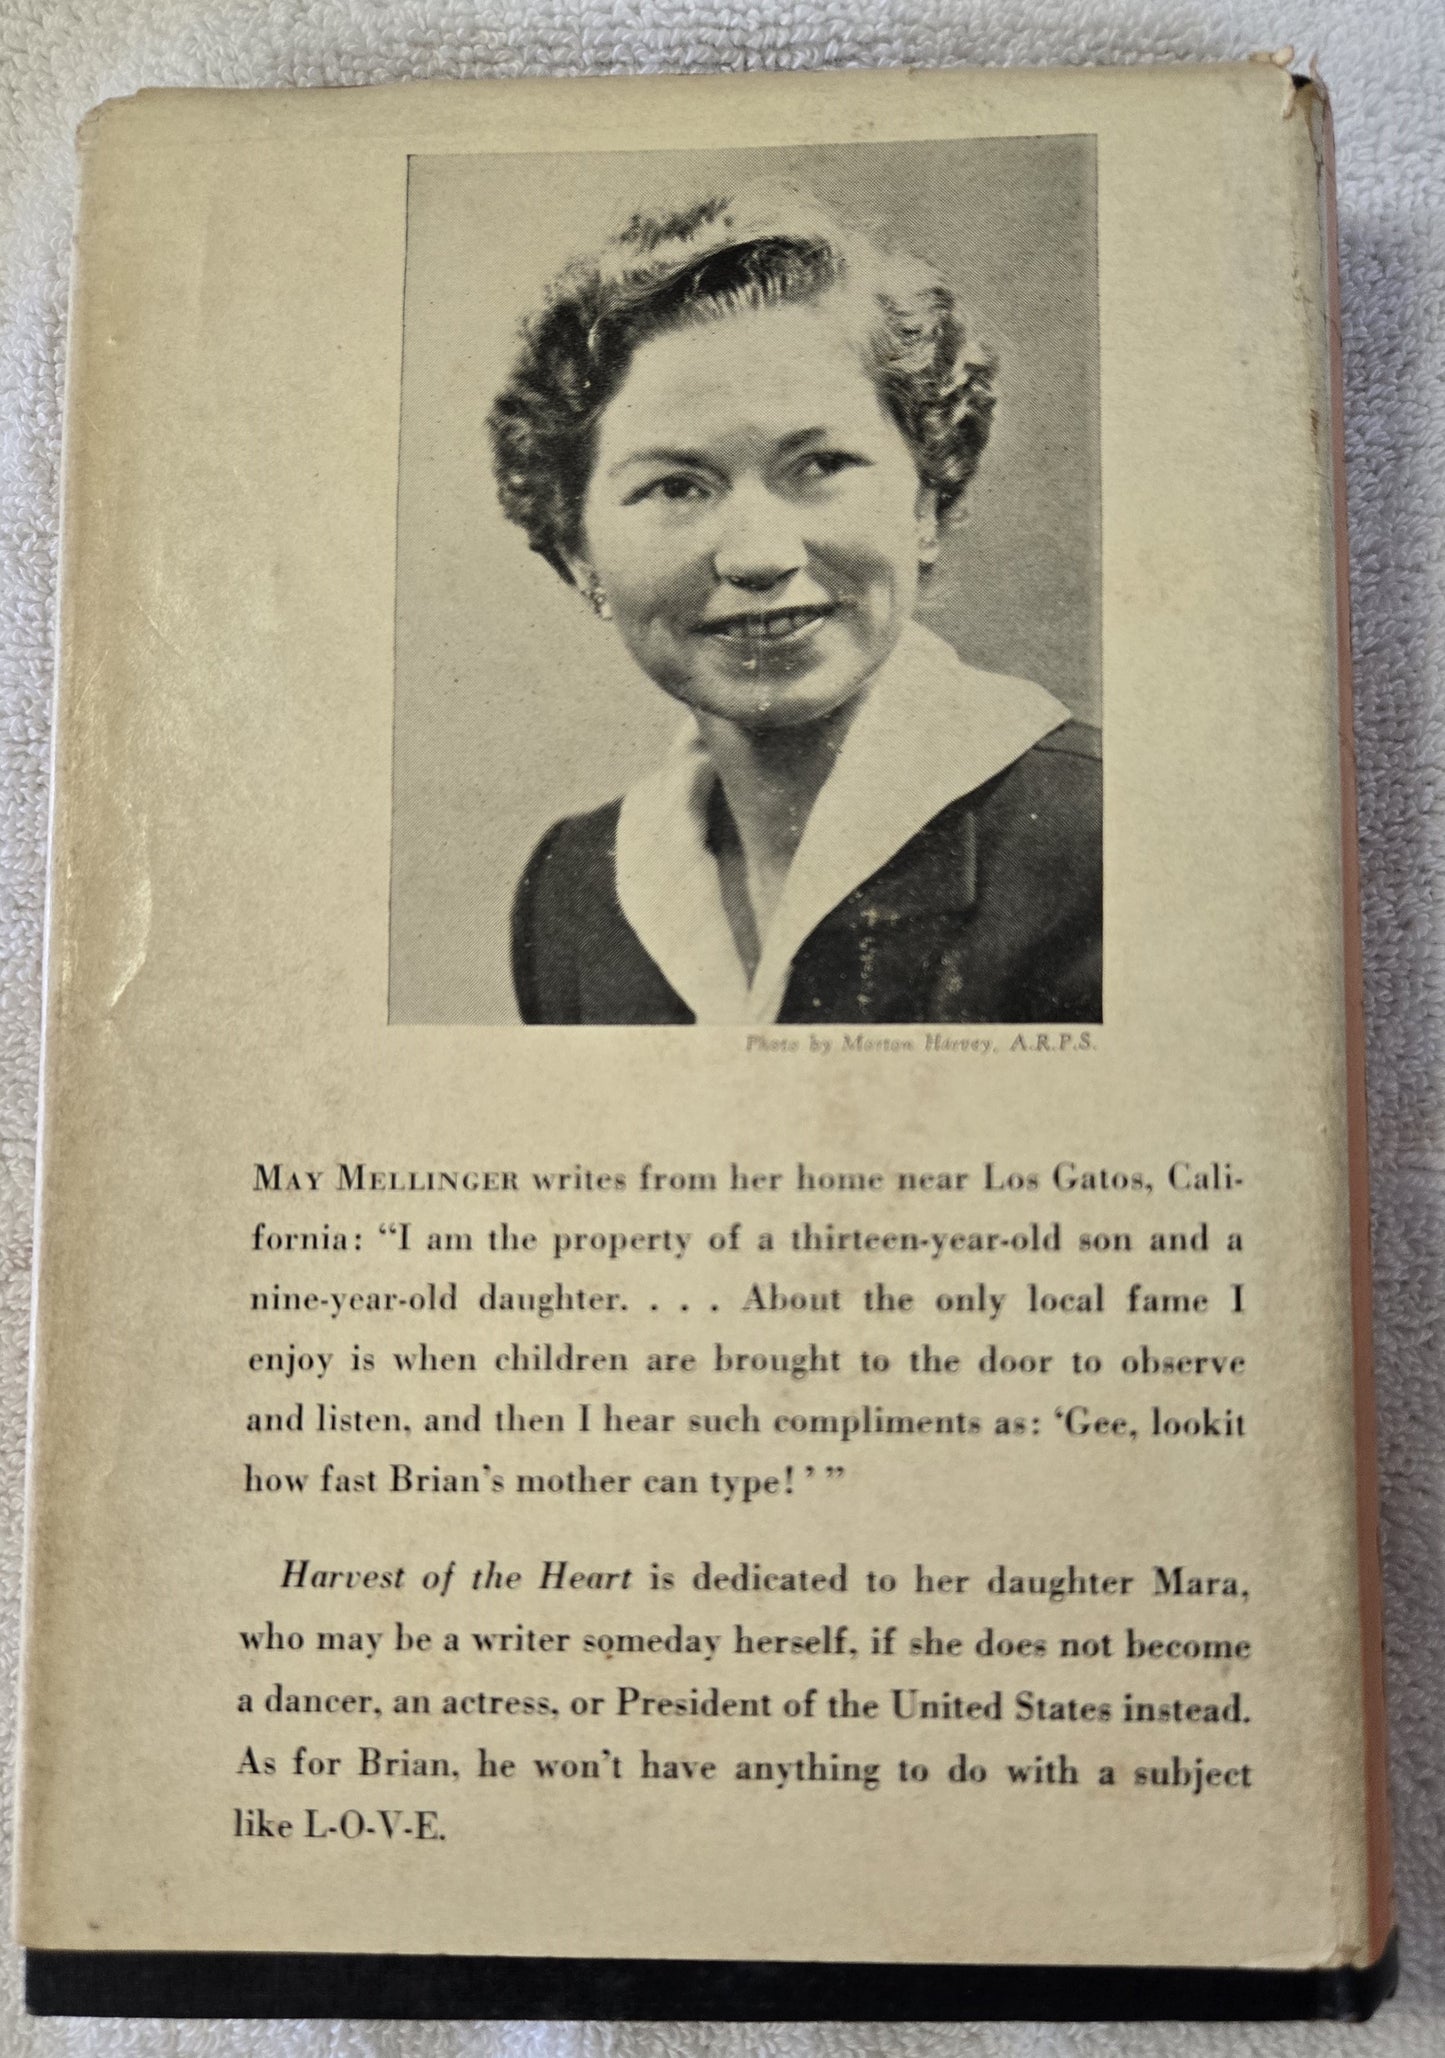 Photo by Morton Harvey, A.R.P.S.
MAY MELLINGER writes from her home near Los Gatos, Cali-
fornia: “I am the property of a thirteen-year-old son and a
nine-year-old daughter. . . . About the only local fame I
enjoy is when children are brought to the door to observe
and listen, and then I hear such compliments as: ‘Gee, lookit
how fast Brian’s mother can type!’”
Harvest of the Heart is dedicated to her daughter Mara,
who may be a writer someday herself, if she does not become
a dancer, an actress, or President of the United States instead.
As for Brian, he won’t have anything to do with a subject
like L-O-V-E.